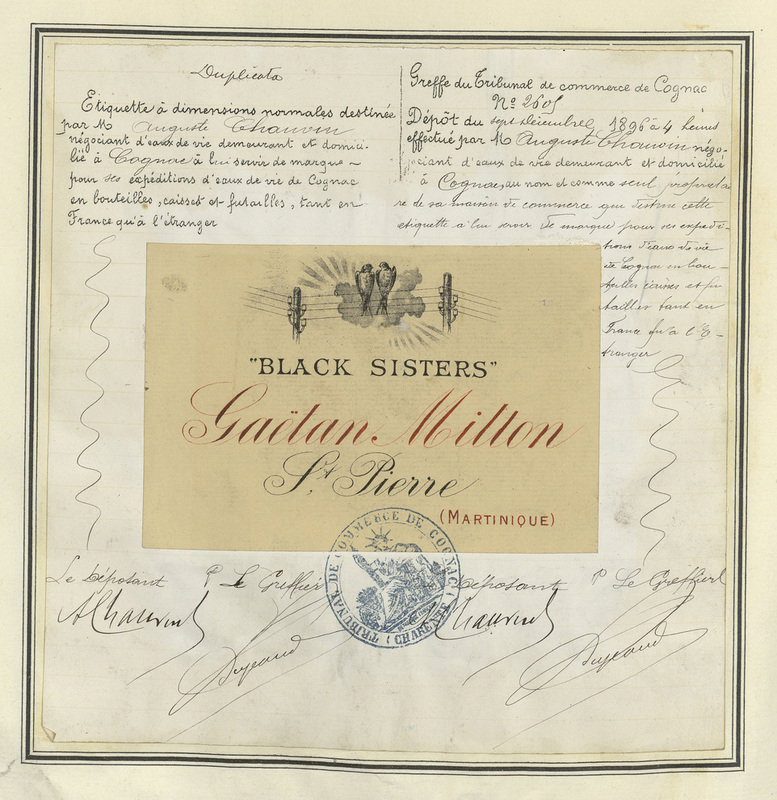 Duplicata
Etiquette à dimensions normales destinée
par M Auguste Chauvin
négociant d'eaux de vie demeurant et domici-
lié à Cognac à lui servir de marque
pour ses expéditions d'eaux de vie de Cognac
en bouteilles, caisses et futailles, tant en
France qu'à l'étranger
Greffe du Tribunal de commerce de Cognac
Nº 2605
Dépôt du sept décembre, 1896 à 4 heures
effectué par M Auguste Chauvin négo-
ciant d'eaux de vie demeurant et domicilié
à Cognac, au nom et comme seul propriétai
re de sa maison de commerce qui destine cette
etiquette à lui servir de marque pour ses expédi-
tions d'eaux de vie
de Cognac en bou-
teilles caisses et fu
tailles tant en
France qu'à l'é-
tranger
"BLACK SISTERS"
Gaëtan Milton
St. Pierre
(MARTINIQUE)
TRIBUNAL DE COMMERCE DE COGNAC
(CHARENTE)
Le Déposant P. Le Greffier
Déposant P. Le Greffier
AChauvin
Chauvin